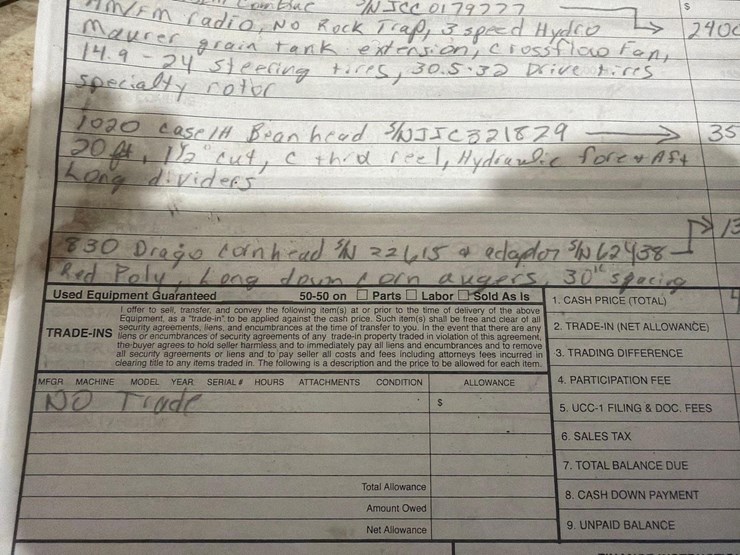 S/N JCC 0179777
$
AM/FM radio, No Rock Trap, 3 speed Hydro → 2400
Maurer grain tank extension, crossflow Fan,
14.9-24 steering tires, 30.5-32 Drive tires
specialty rotor
1020 case IH Bean head S/N JJC321829 → 35
20 ft, 1 1/2" cut, c third reel, Hydraulic fore & Aft
Long dividers
13
830 Drago Cornhead S/N 22615 & adaptor S/N 62438
Red Poly, Long down corn augers, 30" spacing
Used Equipment Guaranteed 50-50 on ☐ Parts ☐ Labor ☐ Sold As Is
TRADE-INS
I offer to sell, transfer, and convey the following item(s) at or prior to the time of delivery of the above
Equipment, as a "trade-in", to be applied against the cash price. Such item(s) shall be free and clear of all
security agreements, liens, and encumbrances at the time of transfer to you. In the event that there are any
liens or encumbrances of security agreements of any trade-in property traded in violation of this agreement,
the buyer agrees to hold seller harmless and to immediately pay all liens and encumbrances and to remove
all security agreements or liens and to pay seller all costs and fees including attorneys fees incurred in
clearing title to any items traded in. The following is a description and the price to be allowed for each item.
MFGR MACHINE MODEL YEAR SERIAL # HOURS ATTACHMENTS CONDITION ALLOWANCE
NO Trade
$
Total Allowance
Amount Owed
Net Allowance
1. CASH PRICE (TOTAL) 4
2. TRADE-IN (NET ALLOWANCE)
3. TRADING DIFFERENCE
4. PARTICIPATION FEE
5. UCC-1 FILING & DOC. FEES
6. SALES TAX
7. TOTAL BALANCE DUE
8. CASH DOWN PAYMENT
9. UNPAID BALANCE